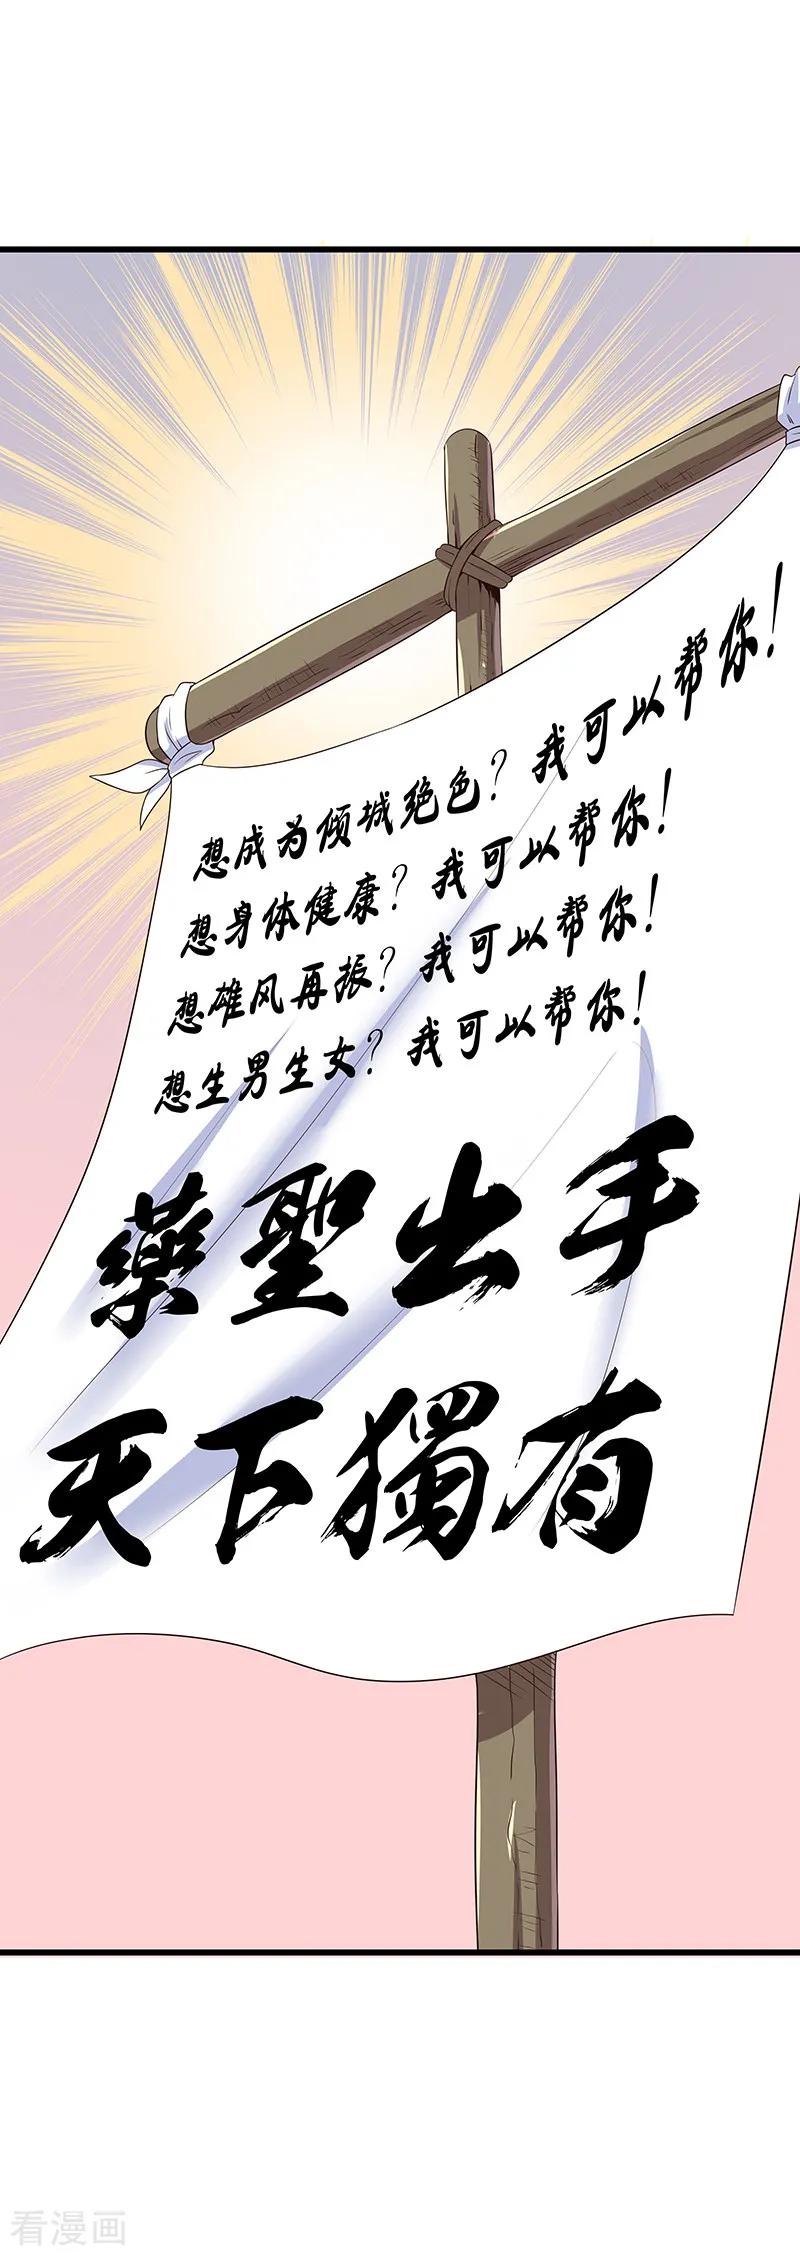 想成为倾城绝色？我可以帮你！
想身体健康？我可以帮你！
想雄风再振？我可以帮你！
想生男生女？我可以帮你！
藥聖出手
天下獨有
看漫画